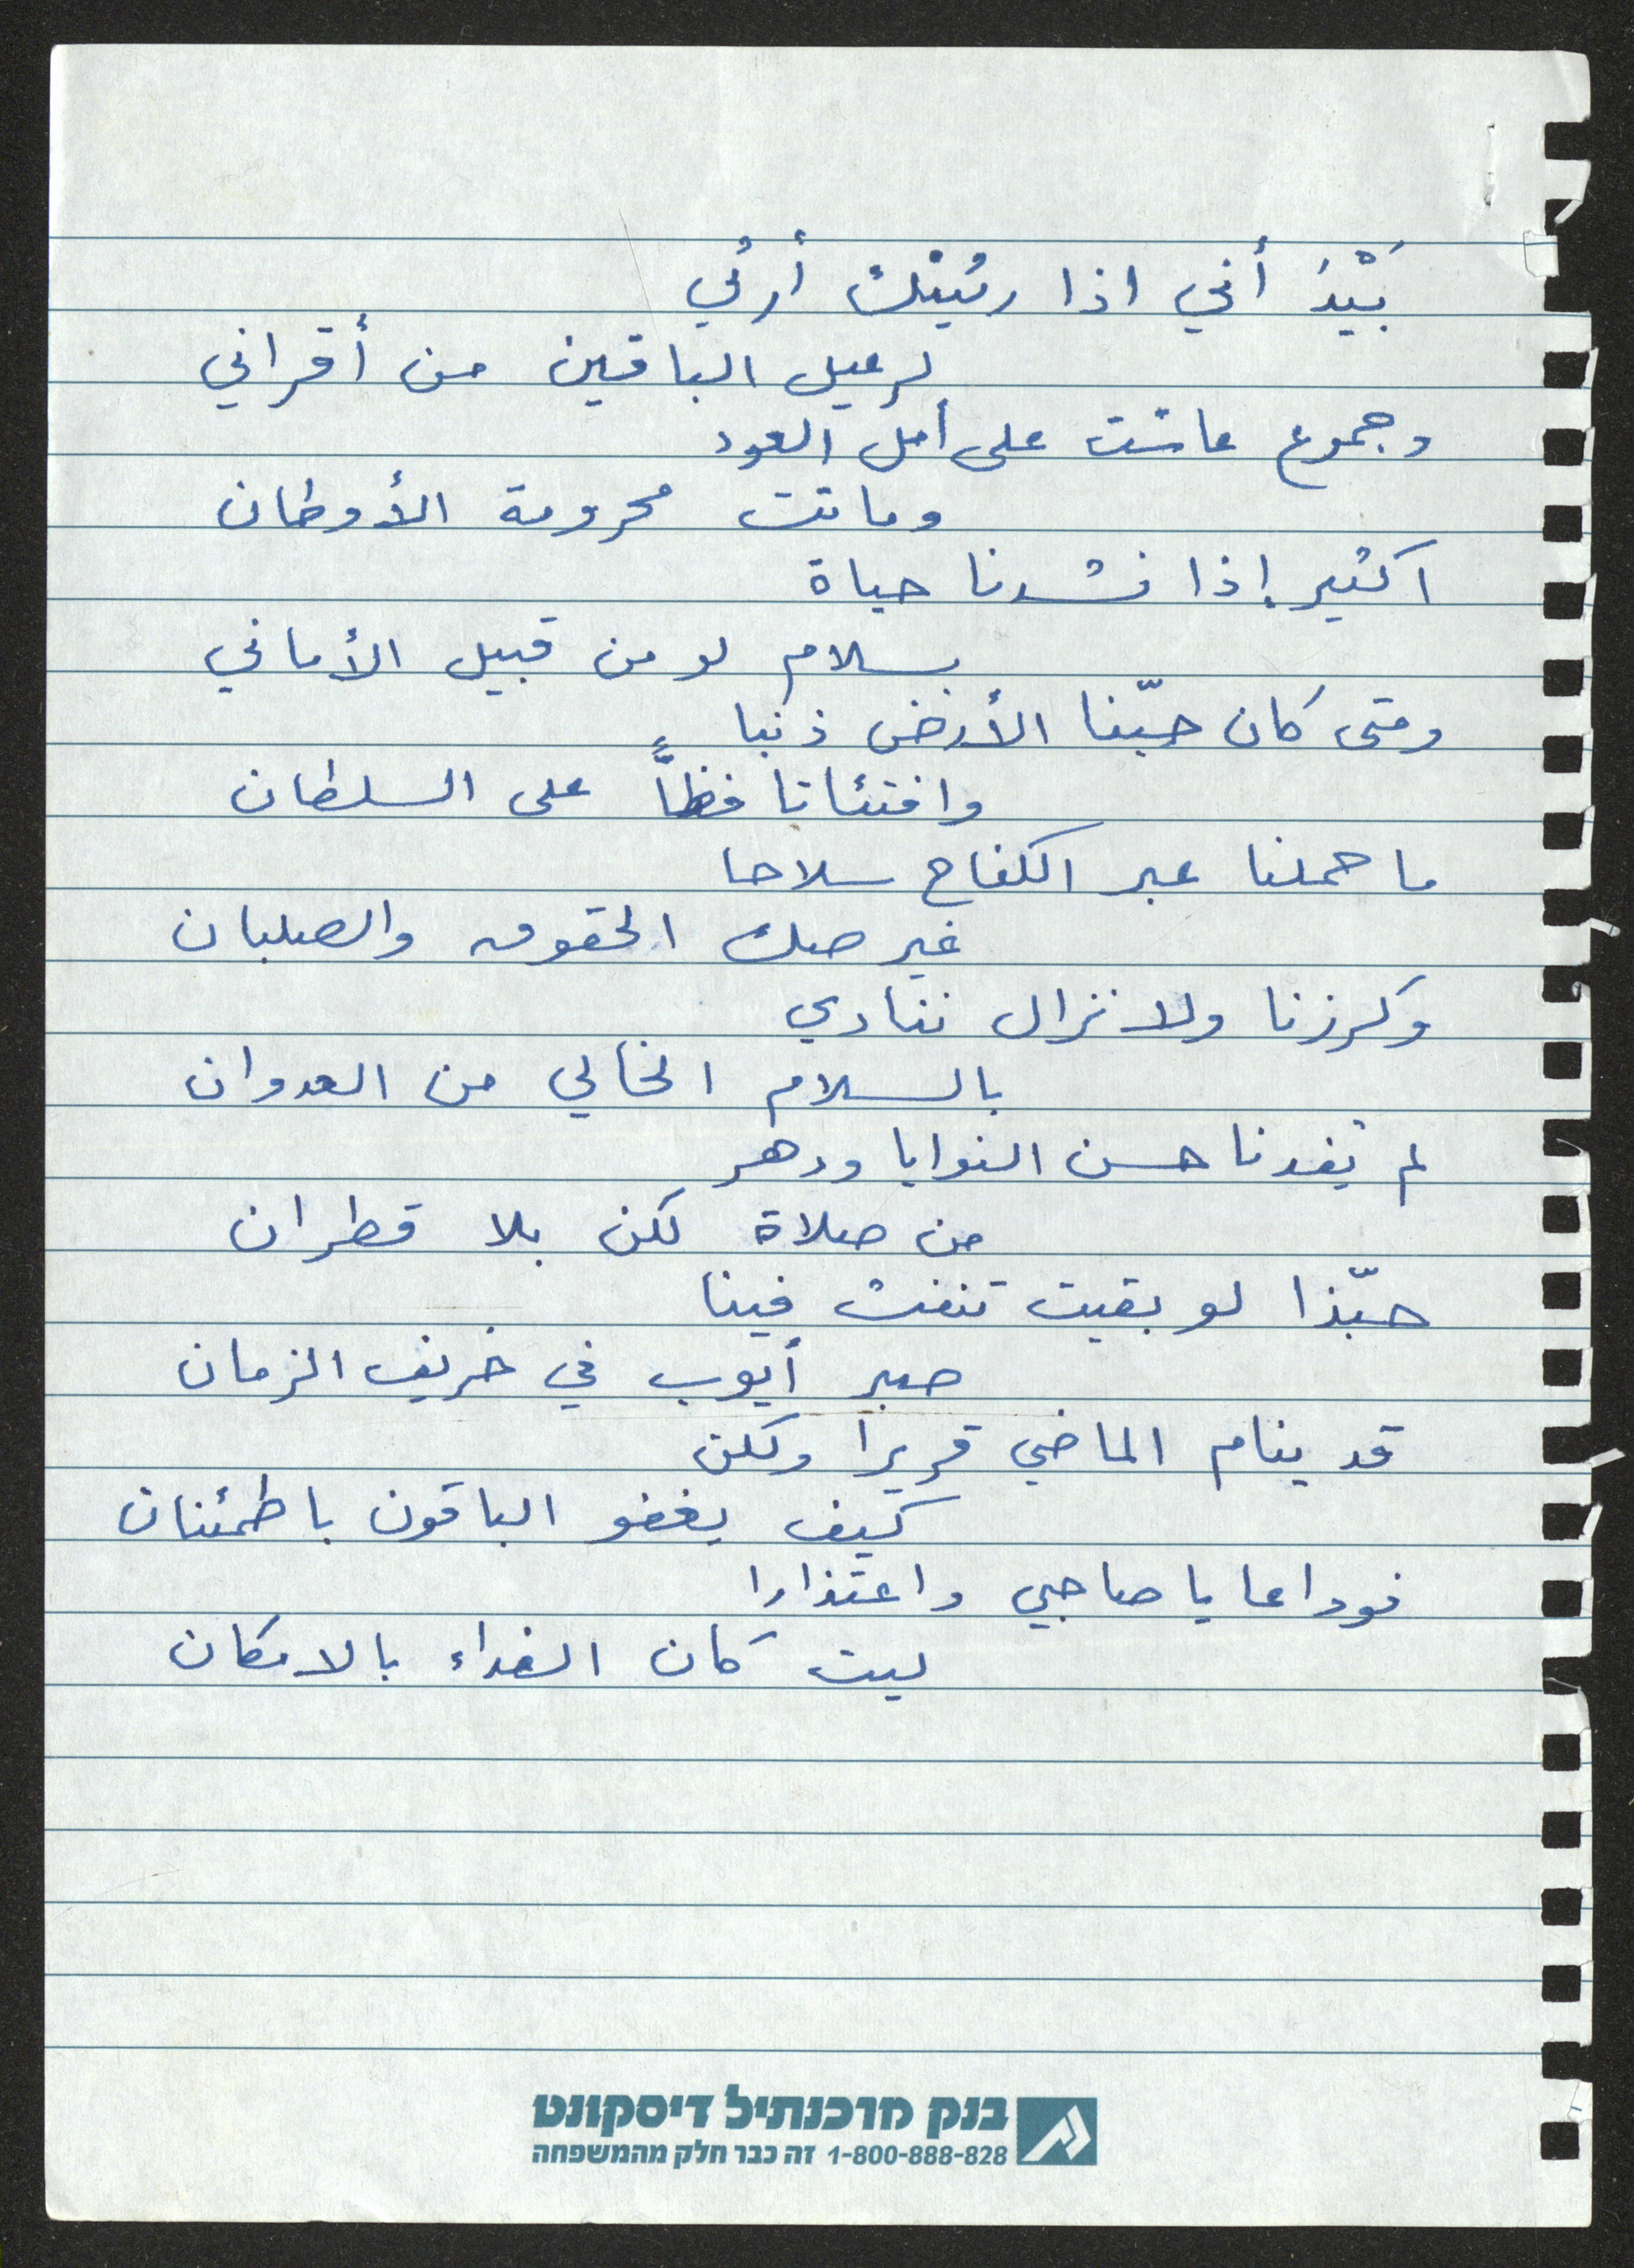 بَيْدَ أني اذا رثيتك أرثي
لرعيل الباقين من أقراني
وجموع عاشت على أمل العود
وماتت محرومة الأوطان
اكثير إذا نشدنا حياة
بسلام لو من قبيل الأماني
ومتى كان حبّنا الأرض ذنبا
وافتئاتا فظاًّ على السلطان
ما حملنا عبر الكفاح سلاحا
غير صك الحقوق والصلبان
وكرزنا ولا نزال ننادي
بالسلام الخالي من العدوان
لم تفدنا حسن النوايا ودهر
من صلاة لكن بلا قطران
حبّذا لو بقيت تنفث فينا
صبر أيوب في خريف الزمان
قد ينام الماضي قريرا ولكن
كيف يغفو الباقون باطمئنان
فوداعا يا صاحبي واعتذارا
ليت كان الفداء بالامكان
בנק מרכנתיל דיסקונט
1-800-888-828 זה כבר חלק מהמשפחה